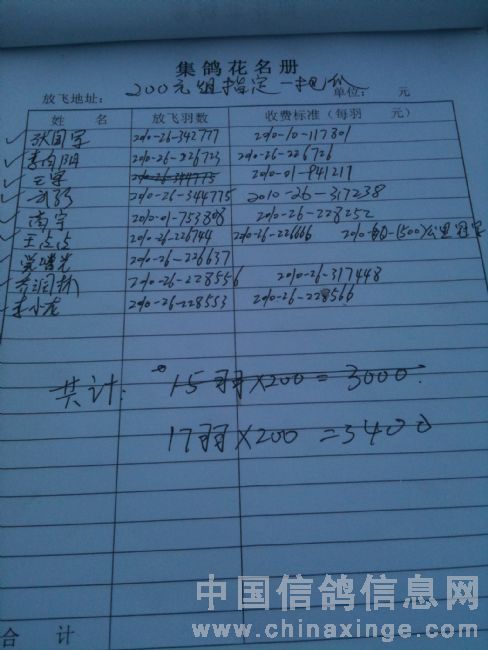 集鸽花名册
放飞地址： 200元组指定 单位： 元
姓 名 放飞羽数 收费标准（每羽 元）
张国军 2010-26-342777 2010-10-117801
李向阳 2010-26-226723 2010-26-226726
王军 2010-26-344775 2010-01-941217
2010-26-344775 2010-26-317238
2010-01-753898 2010-26-228252
王点点 2010-26-226744 2010-26-226666
2010-26-226637
2010-26-228556 2010-26-317448
李小龙 2010-26-228553 2010-26-228566
共计： 15羽×200=3000
17羽×200=3400
合 计
中国信鸽信息网
www.chinaxinge.com